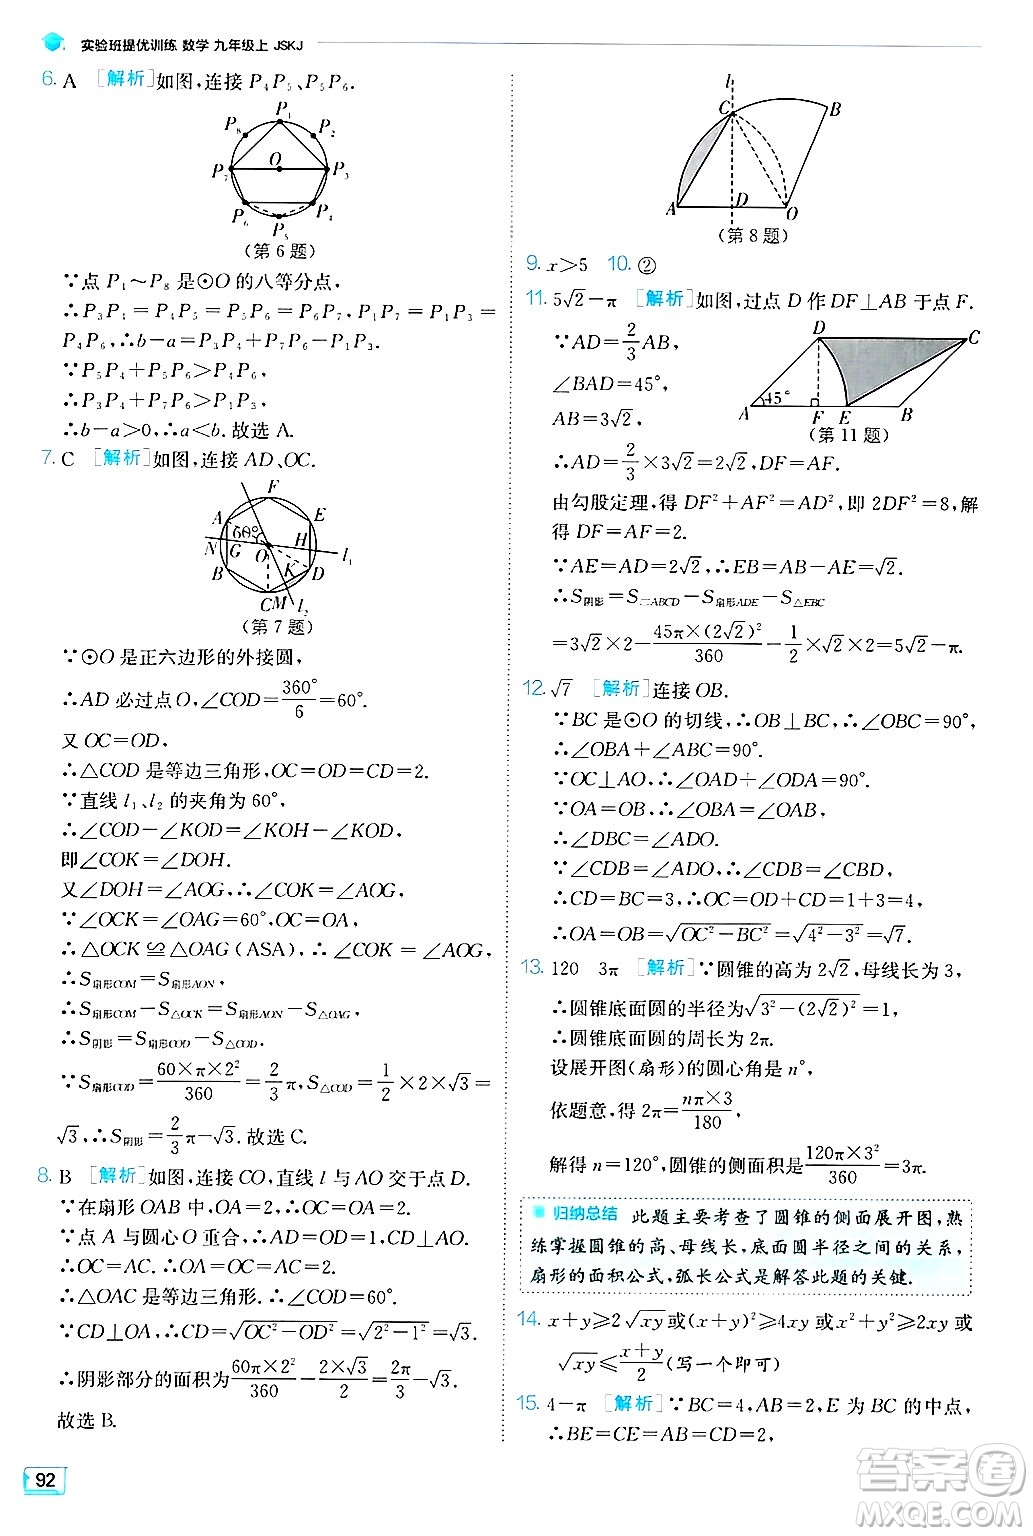 实验班提优训练 数学 九年级上 JSKJ
6. A [解析]如图,连接 P₄P₅、P₅P₆.
P₁
P₈ P₂
P₇ O P₃
P₆ P₄
P₅
(第 6 题)
∵点 P₁~P₈ 是⊙O 的八等分点,
∴P₃P₄=P₄P₅=P₅P₆=P₆P₇,P₁P₇=P₁P₃=
P₄P₆,∴b-a=P₃P₄+P₆P₇-P₁P₃.
∵P₅P₄+P₅P₆>P₄P₆,
∴P₃P₄+P₆P₇>P₁P₃,
∴b-a>0,∴a<b.故选 A.
7. C [解析]如图,连接 AD、OC.
F
A E
60°
N G O H l₁
B K D
C M l₂
(第 7 题)
∵⊙O 是正六边形的外接圆,
∴AD 必过点 O,∠COD=360°/6=60°.
又 OC=OD,
∴△COD 是等边三角形,OC=OD=CD=2.
∵直线 l₁、l₂ 的夹角为 60°,
∴∠COD-∠KOD=∠KOH-∠KOD,
即∠COK=∠DOH.
又∠DOH=∠AOG,∴∠COK=∠AOG.
∵∠OCK=∠OAG=60°,OC=OA,
∴△OCK≌△OAG(ASA),∴∠COK=∠AOG,
∴S扇形COM=S扇形AON,
∴S扇形COM-S△OCK=S扇形AON-S△OAG,
∴S阴影=S扇形COD-S△COD.
∵S扇形COD=60×π×2²/360=2/3π,S△COD=1/2×2×√3=
√3,∴S阴影=2/3π-√3.故选 C.
8. B [解析]如图,连接 CO,直线 l 与 AO 交于点 D.
∵在扇形 OAB 中,OA=2,∴OC=OA=2.
∵点 A 与圆心 O 重合,∴AD=OD=1,CD⊥AO,
∴OC=AC,∴OA=OC=AC=2,
∴△OAC 是等边三角形,∴∠COD=60°.
∵CD⊥OA,∴CD=√(OC²-OD²)=√(2²-1²)=√3,
∴阴影部分的面积为60π×2²/360-2×√3/2=2π/3-√3.
故选 B.
l
C B
A D O
(第 8 题)
9. x>5 10. ②
11. 5√2-π [解析]如图,过点 D 作 DF⊥AB 于点 F.
∵AD=2/3AB,
∠BAD=45°,
AB=3√2,
D C
45°
A F E B
(第 11 题)
∴AD=2/3×3√2=2√2,DF=AF.
由勾股定理,得 DF²+AF²=AD²,即 2DF²=8,解
得 DF=AF=2.
∵AE=AD=2√2,∴EB=AB-AE=√2,
∴S阴影=S▱ABCD-S扇形ADE-S△EBC
=3√2×2-45π×(2√2)²/360-1/2×√2×2=5√2-π.
12. √7 [解析]连接 OB.
∵BC 是⊙O 的切线,∴OB⊥BC,∴∠OBC=90°,
∴∠OBA+∠DBC=90°.
∵OC⊥AO,∴∠OAD+∠ODA=90°.
∵OA=OB,∴∠OBA=∠OAB,
∴∠DBC=∠ADO.
∵∠CDB=∠ADO,∴∠CDB=∠CBD,
∴CD=BC=3,∴OC=OD+CD=1+3=4,
∴OA=OB=√(OC²-BC²)=√(4²-3²)=√7.
13. 120 3π [解析]∵圆锥的高为 2√2,母线长为 3,
∴圆锥底面圆的半径为√(3²-(2√2)²)=1,
∴圆锥底面圆的周长为 2π.
设展开图(扇形)的圆心角是 n°,
依题意,得 2π=nπ×3/180,
解得 n=120°,圆锥的侧面积是120π×3²/360=3π.
归纳总结 此题主要考查了圆锥的侧面展开图,熟
练掌握圆锥的高、母线长,底面圆半径之间的关系,
扇形的面积公式,弧长公式是解答此题的关键.
14. x+y≥2√xy或(x+y)²≥4xy或x²+y²≥2xy或
√xy≤(x+y)/2(写一个即可)
15. 4-π [解析]∵BC=4=2,E 为 BC 的中点,
∴BE=CE=CD=2,
92
答案圈
MXQE.COM